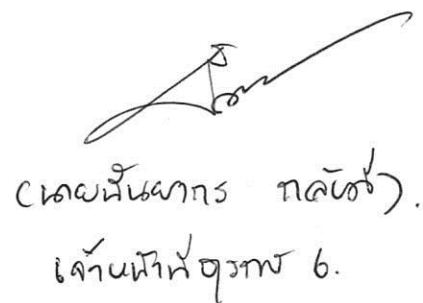 (นายพันยากร กลัยวี).
เจ้าหน้าที่ธุรการ 6.